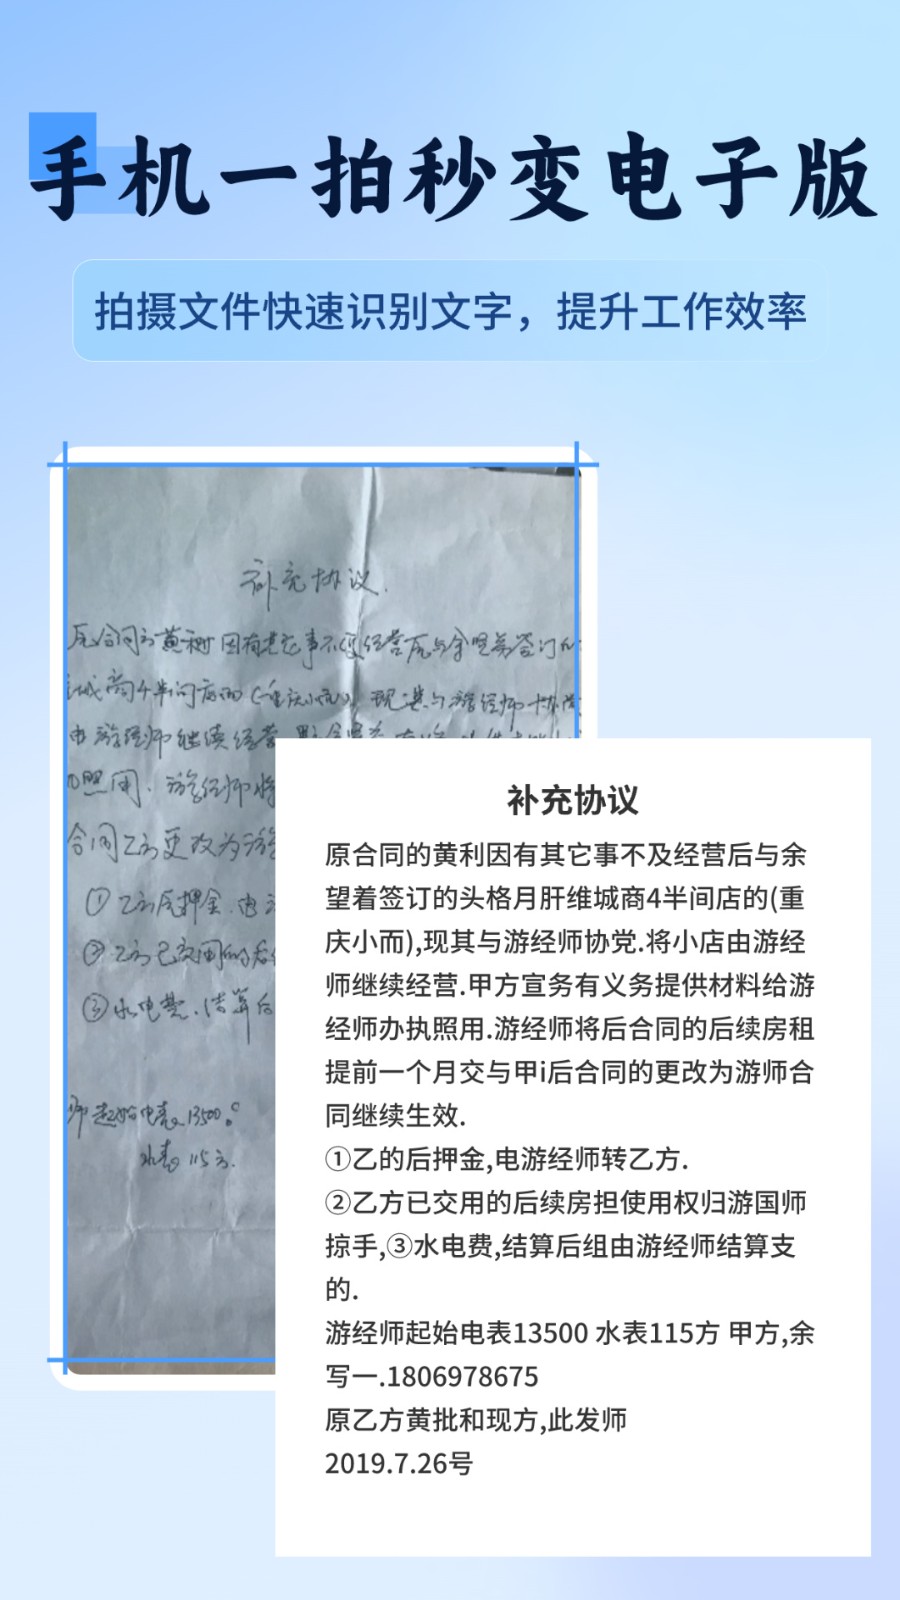 手机一拍秒变电子版
拍摄文件快速识别文字，提升工作效率
补充协议.
由游经师继续经营
合同乙方更改为游
①乙方原押金.电
②乙方已交用的后
③水电费.结算后
师起始电表13500。
水表115方.
补充协议
原合同的黄利因有其它事不及经营后与余
望着签订的头格月肝维城商4半间店的(重
庆小而),现其与游经师协党.将小店由游经
师继续经营.甲方宣务有义务提供材料给游
经师办执照用.游经师将后合同的后续房租
提前一个月交与甲i后合同的更改为游师合
同继续生效.
①乙的后押金,电游经师转乙方.
②乙方已交用的后续房担使用权归游国师
掠手,③水电费,结算后组由游经师结算支
的.
游经师起始电表13500 水表115方 甲方,余
写一.1806978675
原乙方黄批和现方,此发师
2019.7.26号